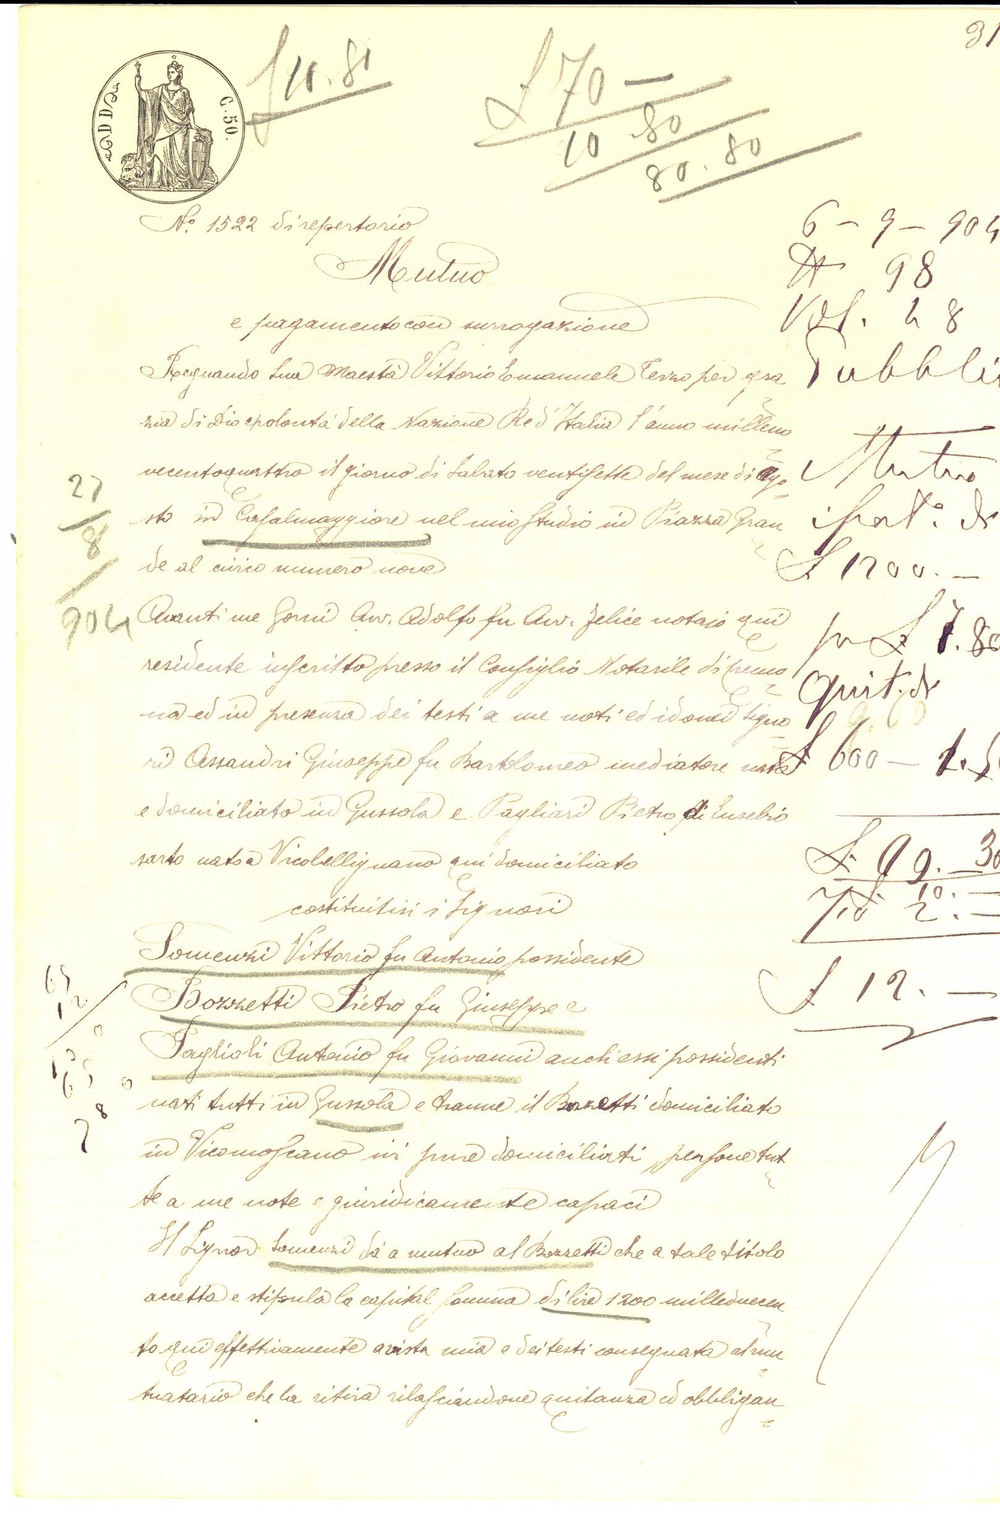 31
£ 11.81
£ 70 —
10 80
80.80
C. 50.
N.° 1522 di repertorio
Mutuo
e pagamento con surrogazione
Regnando Sua Maestà Vittorio Emanuele Terzo per gra
zia di Dio e volontà della Nazione Re d'Italia l'anno milleno
vecentoquattro il giorno di Sabato ventisette del mese di Ago
sto in Casalmaggiore nel mio studio in Piazza Gran
de al civico numero nove
Avanti me Gorni Avv. Adolfo fu Avv. Felice notaio qui
residente inscritto presso il Consiglio Notarile di Cremo
na ed in presenza dei testi a me noti ed idonei Signo
ri Assandri Giuseppe fu Bartolomeo mediatore nato
e domiciliato in Gussola e Pagliari Pietro di Eusebio
sarto nato a Vicobellignano qui domiciliato
costituitisi i Signori
Somenzi Vittorio fu Antonio possidente
Bozzetti Pietro fu Giuseppe e
Taglioli Antonio fu Giovanni anch'essi possidenti
nati tutti in Gussola e tranne il Bozzetti domiciliato
in Vicomoscano ivi pure domiciliati, persone tut
te a me note e giuridicamente capaci
Il Signor Somenzi dà a mutuo al Bozzetti che a tale titolo
accetta e stipula la capital somma di lire 1200 milleduecen
to qui effettivamente a vista mia e dei testi consegnata al mu
tuatario che la ritira rilasciandone quitanza ed obbligan
27
8
904
65
12
130
650
78
6 - 9 - 904
N 98
Vol. 48
Pubbli
Mutuo
ipot.° di
£ 1200. —
per £ 7.80
Quit. di
£ 600 — 1.5
£. 9 9. 30
10. —
2. —
£ 12. —